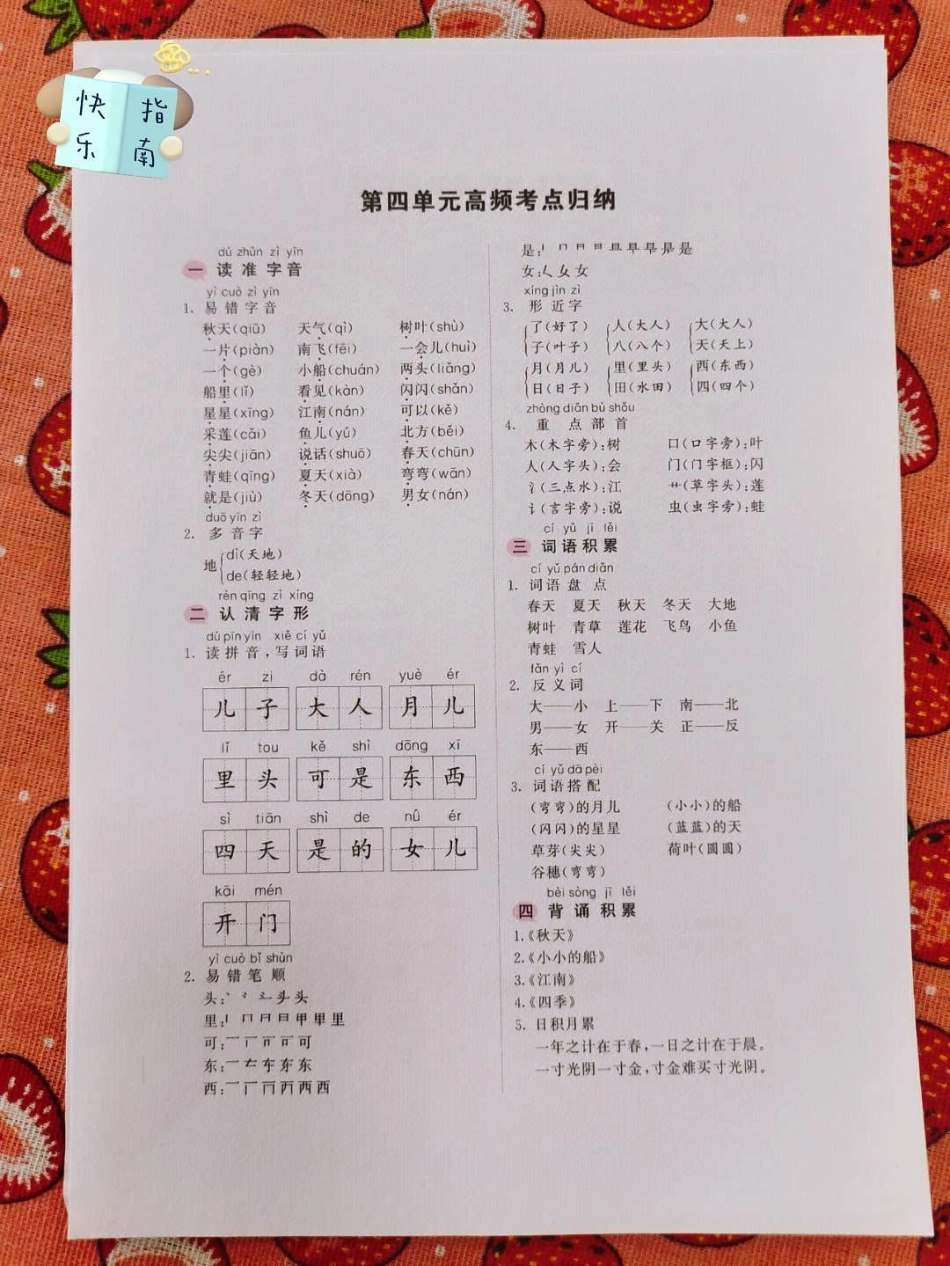 快 指
乐 南
第四单元高频考点归纳
dú zhǔn zì yīn
一 读准字音
yì cuò zì yīn
1. 易错字音
秋天(qiū) 天气(qì) 树叶(shù)
一片(piàn) 南飞(fēi) 一会儿(huì)
一个(gè) 小船(chuán) 两头(liǎng)
船里(lǐ) 看见(kàn) 闪闪(shǎn)
星星(xīng) 江南(nán) 可以(kě)
采莲(cǎi) 鱼儿(yú) 北方(běi)
尖尖(jiān) 说话(shuō) 春天(chūn)
青蛙(qīng) 夏天(xià) 弯弯(wān)
就是(jiù) 冬天(dōng) 男女(nán)
duō yīn zì
2. 多音字
地
dì(天地)
de(轻轻地)
rèn qīng zì xíng
二 认清字形
dú pīn yīn xiě cí yǔ
1. 读拼音,写词语
ér zi dà rén yuè ér
儿子 大人 月儿
lǐ tou kě shì dōng xī
里头 可是 东西
sì tiān shì de nǚ ér
四天 是的 女儿
kāi mén
开门
yì cuò bǐ shùn
2. 易错笔顺
头:丶 ⺀ 头 头
里:丨 冂 日 日 甲 里 里
可:一 丆 可 可
东:一 车 东 东
西:一 丆 丙 西 西
是:丨 冂 日 日 旦 早 早 是 是
女:く 女 女
xíng jìn zì
3. 形近字
了(好了) 人(大人) 大(大人)
子(叶子) 八(八个) 天(天上)
月(月儿) 里(里头) 西(东西)
日(日子) 田(水田) 四(四个)
zhòng diǎn bù shǒu
4. 重点部首
木(木字旁):树 口(口字旁):叶
人(人字头):会 门(门字框):闪
氵(三点水):江 艹(草字头):莲
讠(言字旁):说 虫(虫字旁):蛙
cí yǔ jī lěi
三 词语积累
cí yǔ pán diǎn
1. 词语盘点
春天 夏天 秋天 冬天 大地
树叶 青草 莲花 飞鸟 小鱼
青蛙 雪人
fǎn yì cí
2. 反义词
大——小 上——下 南——北
男——女 开——关 正——反
东——西
cí yǔ dā pèi
3. 词语搭配
(弯弯)的月儿 (小小)的船
(闪闪)的星星 (蓝蓝)的天
草芽(尖尖) 荷叶(圆圆)
谷穗(弯弯)
bèi sòng jī lěi
四 背诵积累
1.《秋天》
2.《小小的船》
3.《江南》
4.《四季》
5. 日积月累
一年之计在于春,一日之计在于晨。
一寸光阴一寸金,寸金难买寸光阴。